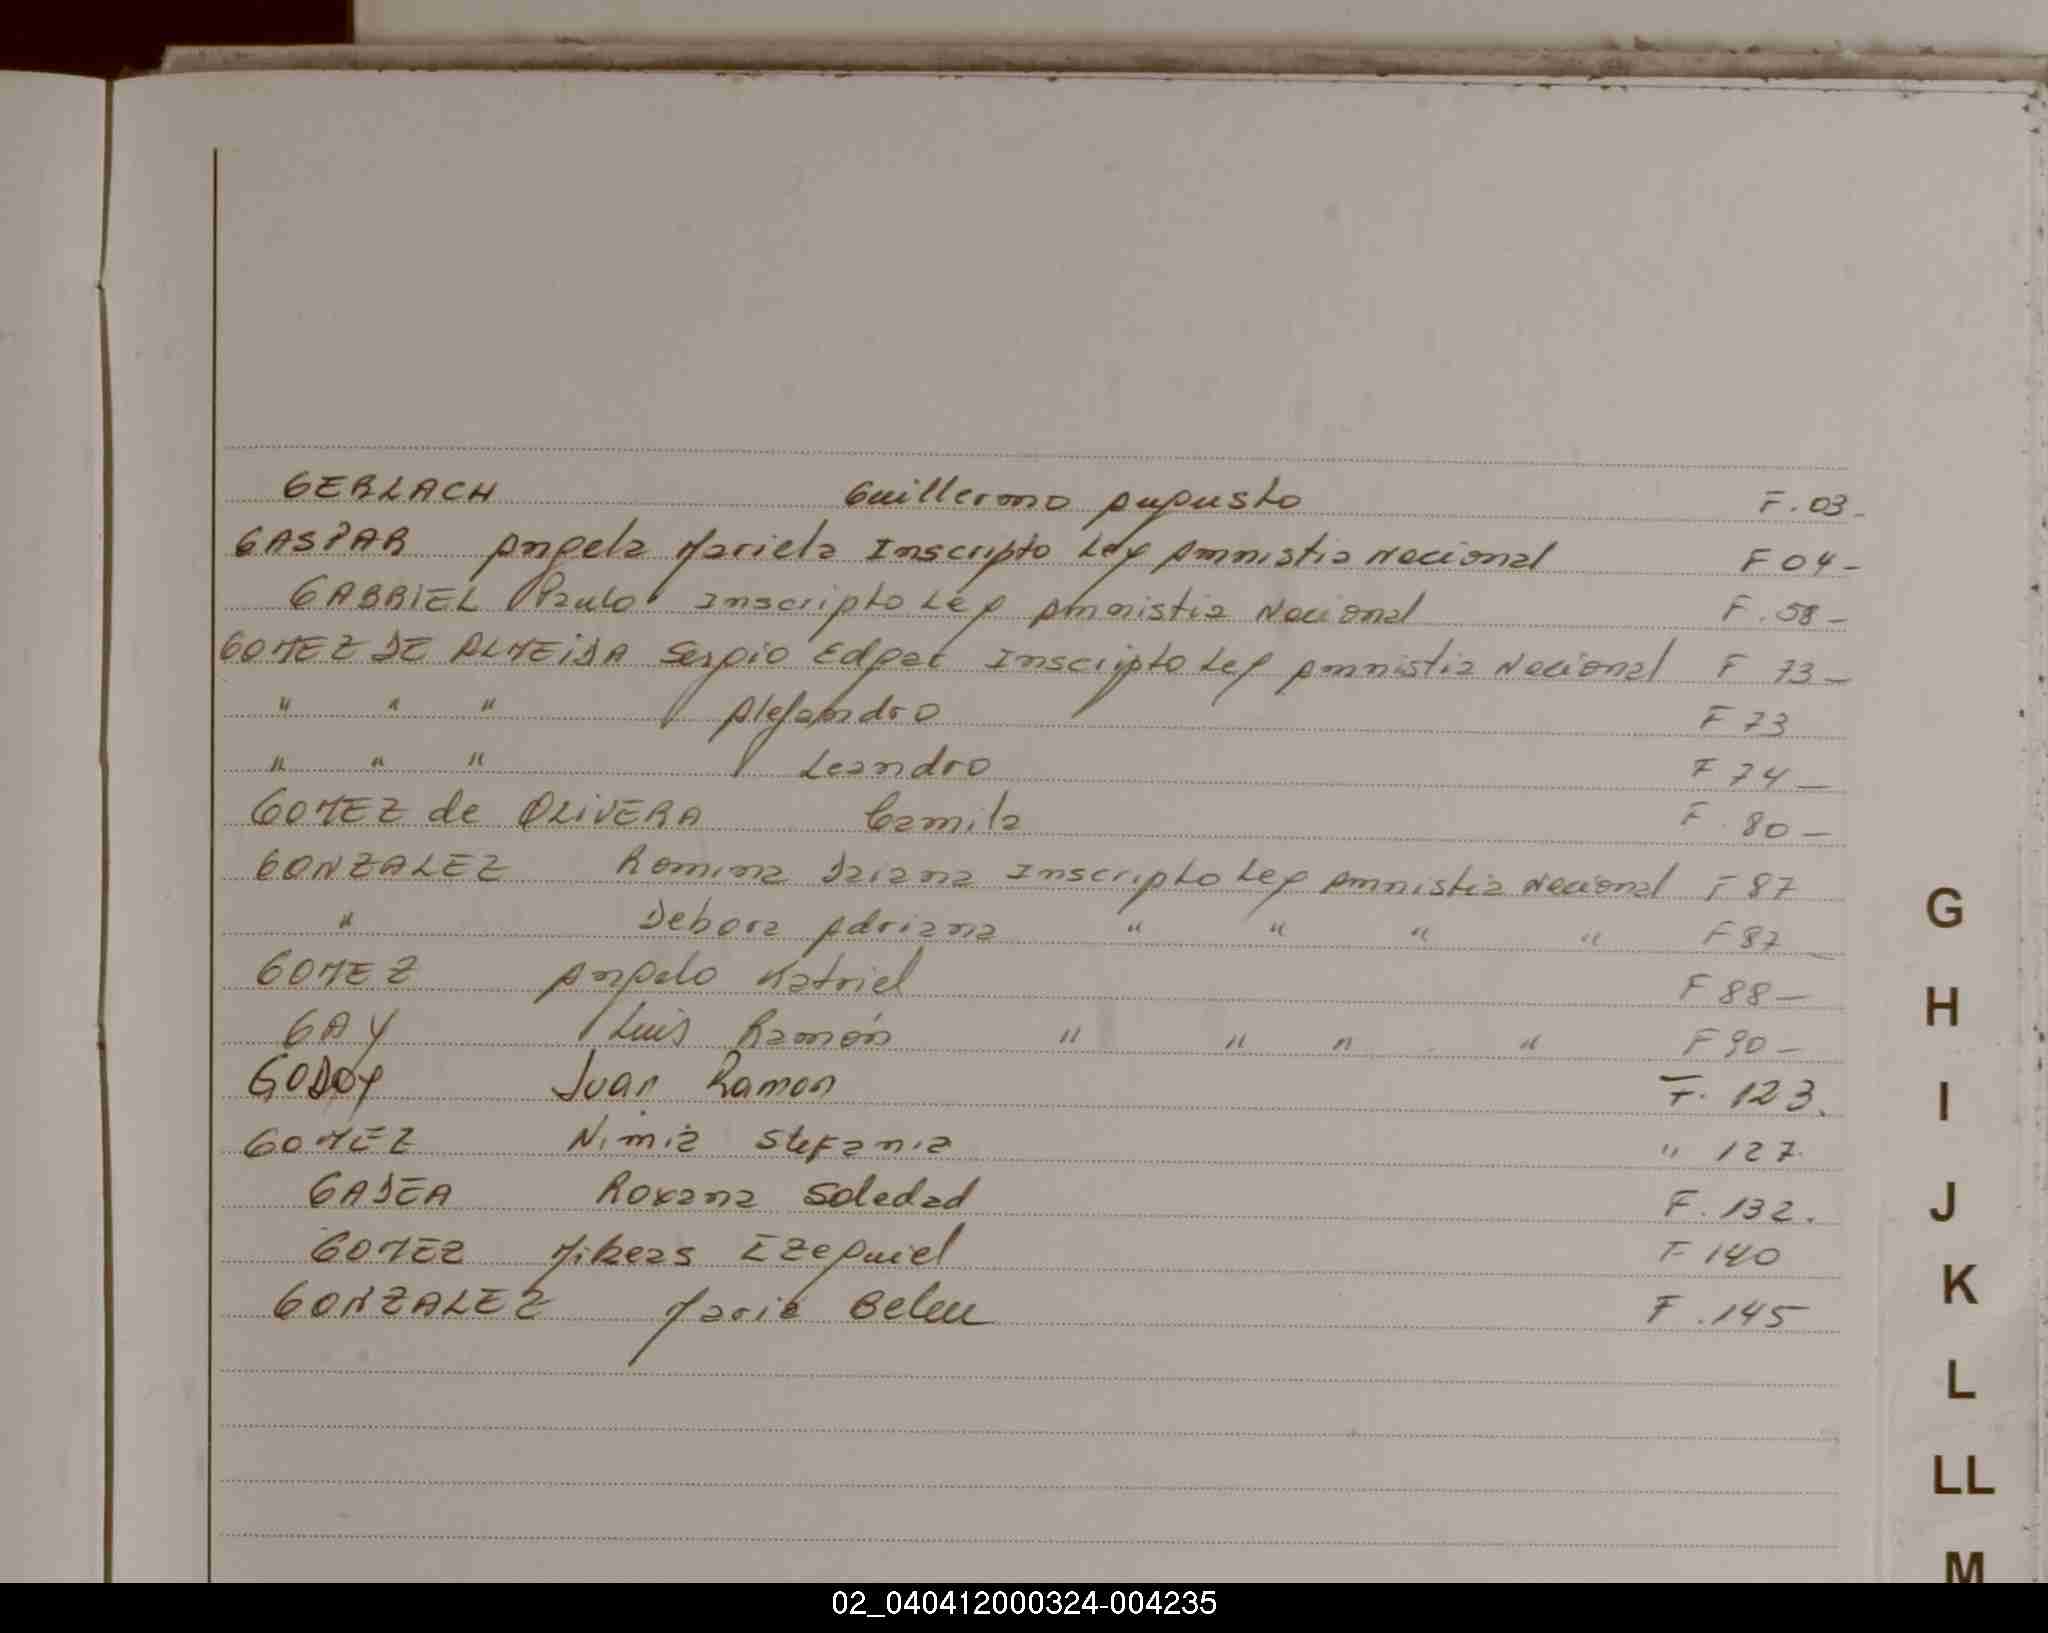 GERLACH Guillermo Augusto F. 03-
GASPAR Angela Mariela Inscripto Ley Amnistia Nacional F 04-
GABRIEL Paulo Inscripto Ley Amnistia Nacional F. 58-
GOMEZ DE ALMEIDA Sergio Edgar Inscripto Ley Amnistia Nacional F 73-
" " " Alejandro F 73
" " " Leandro F 74-
GOMEZ de OLIVERA Camila F. 80-
GONZALEZ Romina Daiana Inscripto Ley Amnistia Nacional F 87
" Debora Adriana " " " " F 87
GOMEZ Angelo Natriel F 88-
GAY Luis Ramón " " " " F 90-
GODOY Juan Ramon F. 123.
GOMEZ Nimia Stefania " 127.
GADEA Roxana Soledad F. 132.
GOMEZ Mikeas Ezequiel F 140
GONZALEZ Maria Belen F. 145
G
H
I
J
K
L
LL
M
02_040412000324-004235